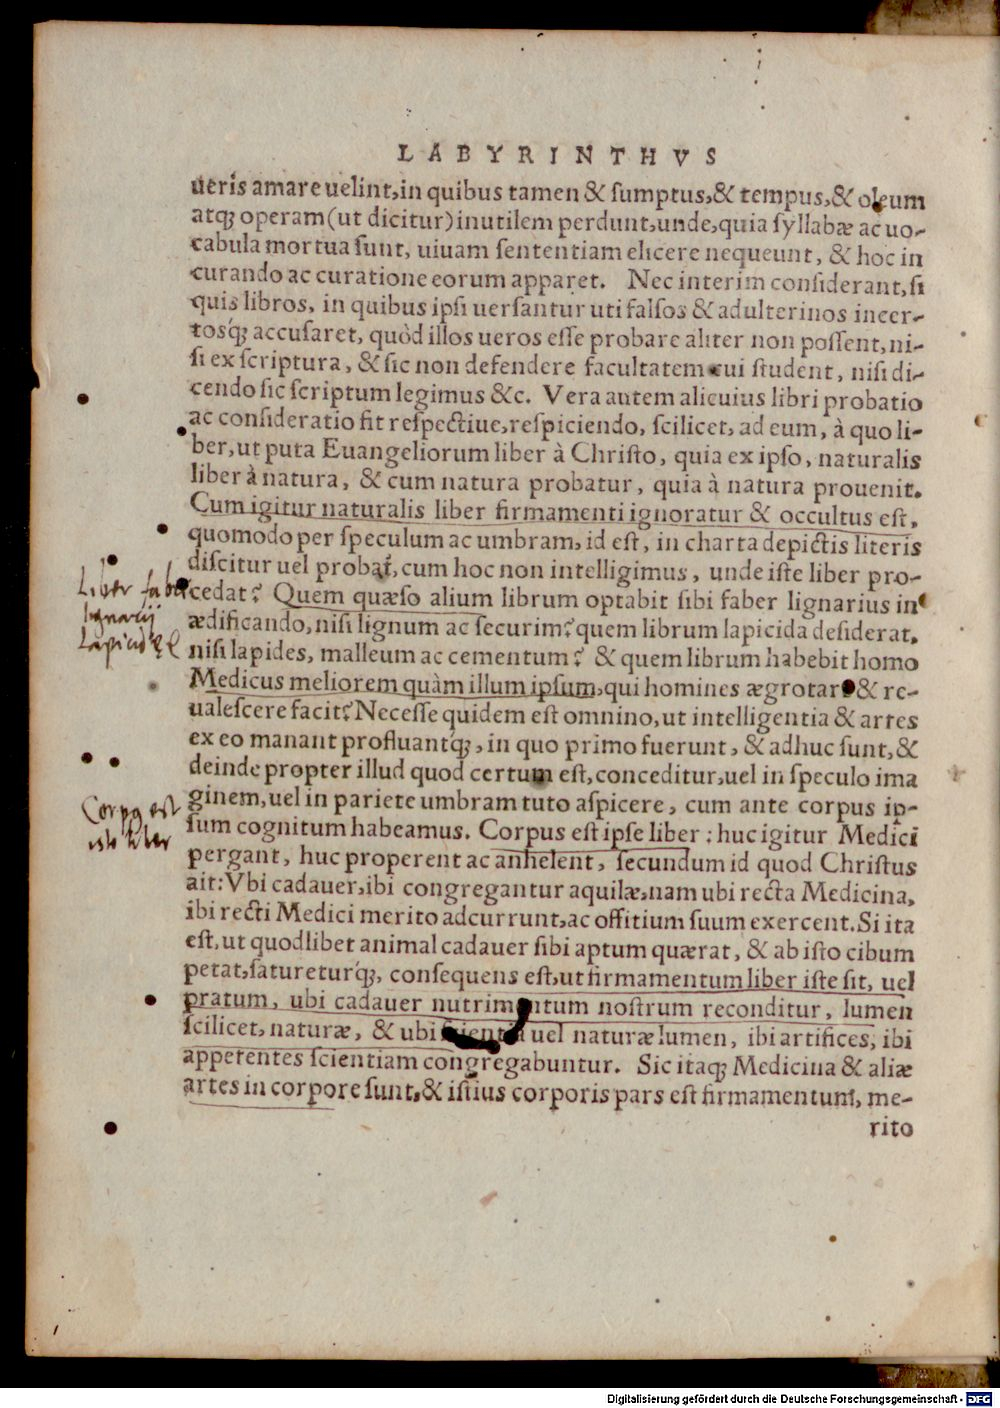 LABYRINTHVS
ueris amare uelint, in quibus tamen & ſumptus, & tempus, & oleum
atq́ꝫ operam (ut dicitur) inutilem perdunt, unde, quia ſyllabæ ac uo-
cabula mortua ſunt, uiuam ſententiam elicere nequeunt, & hoc in
curando ac curatione eorum apparet. Nec interim conſiderant, ſi
quis libros, in quibus ipſi uerſantur uti falſos & adulterinos incer-
tosq́ꝫ accuſaret, quòd illos ueros eſſe probare aliter non poſſent, ni-
ſi ex ſcriptura, & ſic non defendere facultatem cui ſtudent, niſi di-
cendo ſic ſcriptum legimus &c. Vera autem alicuius libri probatio
ac conſideratio fit reſpectiue, reſpiciendo, ſcilicet, ad eum, à quo li-
ber, ut puta Euangeliorum liber à Chriſto, quia ex ipſo, naturalis
liber à natura, & cum natura probatur, quia à natura prouenit.
Cum igitur naturalis liber firmamenti ignoratur & occultus eſt,
quomodo per ſpeculum ac umbram, id eſt, in charta depictis literis
diſcitur uel probat̃, cum hoc non intelligimus, unde iſte liber pro-
cedat? Quem quæſo alium librum optabit ſibi faber lignarius in
ædificando, niſi lignum ac ſecurim? quem librum lapicida deſiderat,
niſi lapides, malleum ac cementum? & quem librum habebit homo
Medicus meliorem quàm illum ipſum, qui homines ægrotare & re-
ualeſcere facit? Neceſſe quidem eſt omnino, ut intelligentia & artes
ex eo manant profluantq́ꝫ, in quo primo fuerunt, & adhuc ſunt, &
deinde propter illud quod certum eſt, conceditur, uel in ſpeculo ima
ginem, uel in pariete umbram tuto aſpicere, cum ante corpus ip-
ſum cognitum habeamus. Corpus eſt ipſe liber: huc igitur Medici
pergant, huc properent ac anhelent, ſecundum id quod Chriſtus
ait: Vbi cadauer, ibi congregantur aquilæ, nam ubi recta Medicina,
ibi recti Medici merito adcurrunt, ac offitium ſuum exercent. Si ita
eſt, ut quodlibet animal cadauer ſibi aptum quærat, & ab iſto cibum
petat, ſatureturq́ꝫ, conſequens eſt, ut firmamentum liber iſte ſit, uel
pratum, ubi cadauer nutrimentum noſtrum reconditur, lumen
ſcilicet, naturæ, & ubi ſcientia uel naturæ lumen, ibi artifices, ibi
appetentes ſcientiam congregabuntur. Sic itaqꝫ Medicina & aliæ
artes in corpore ſunt, & iſtius corporis pars eſt firmamentum, me-
rito
Liber fabri
lignarij
Corpꝰ est
iste liber
Digitalisierung gefördert durch die Deutsche Forschungsgemeinschaft - DFG